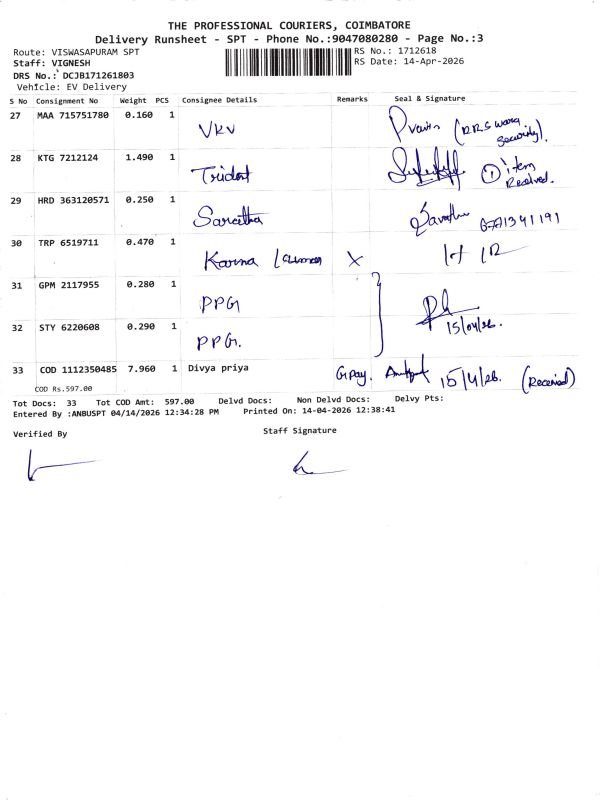 THE PROFESSIONAL COURIERS, COIMBATORE
Delivery Runsheet - SPT - Phone No.:9047080280 - Page No.:3
Route: VISWASAPURAM SPT RS No.: 1712618
Staff: VIGNESH RS Date: 14-Apr-2026
DRS No.: DCJB171261803
Vehicle: EV Delivery
S No Consignment No Weight PCS Consignee Details Remarks Seal & Signature
27 MAA 715751780 0.160 1 VKV
28 KTG 7212124 1.490 1 Trident 1 item Received.
29 HRD 363120571 0.250 1
30 TRP 6519711 0.470 1 X
31 GPM 2117955 0.280 1 PPG
32 STY 6220608 0.290 1 PPG. 15/04/26.
33 COD 1112350485 7.960 1 Divya priya Gpay. 15/4/26. (Received)
COD Rs.597.00
Tot Docs: 33 Tot COD Amt: 597.00 Delvd Docs: Non Delvd Docs: Delvy Pts:
Entered By :ANBUSPT 04/14/2026 12:34:28 PM Printed On: 14-04-2026 12:38:41
Verified By Staff Signature